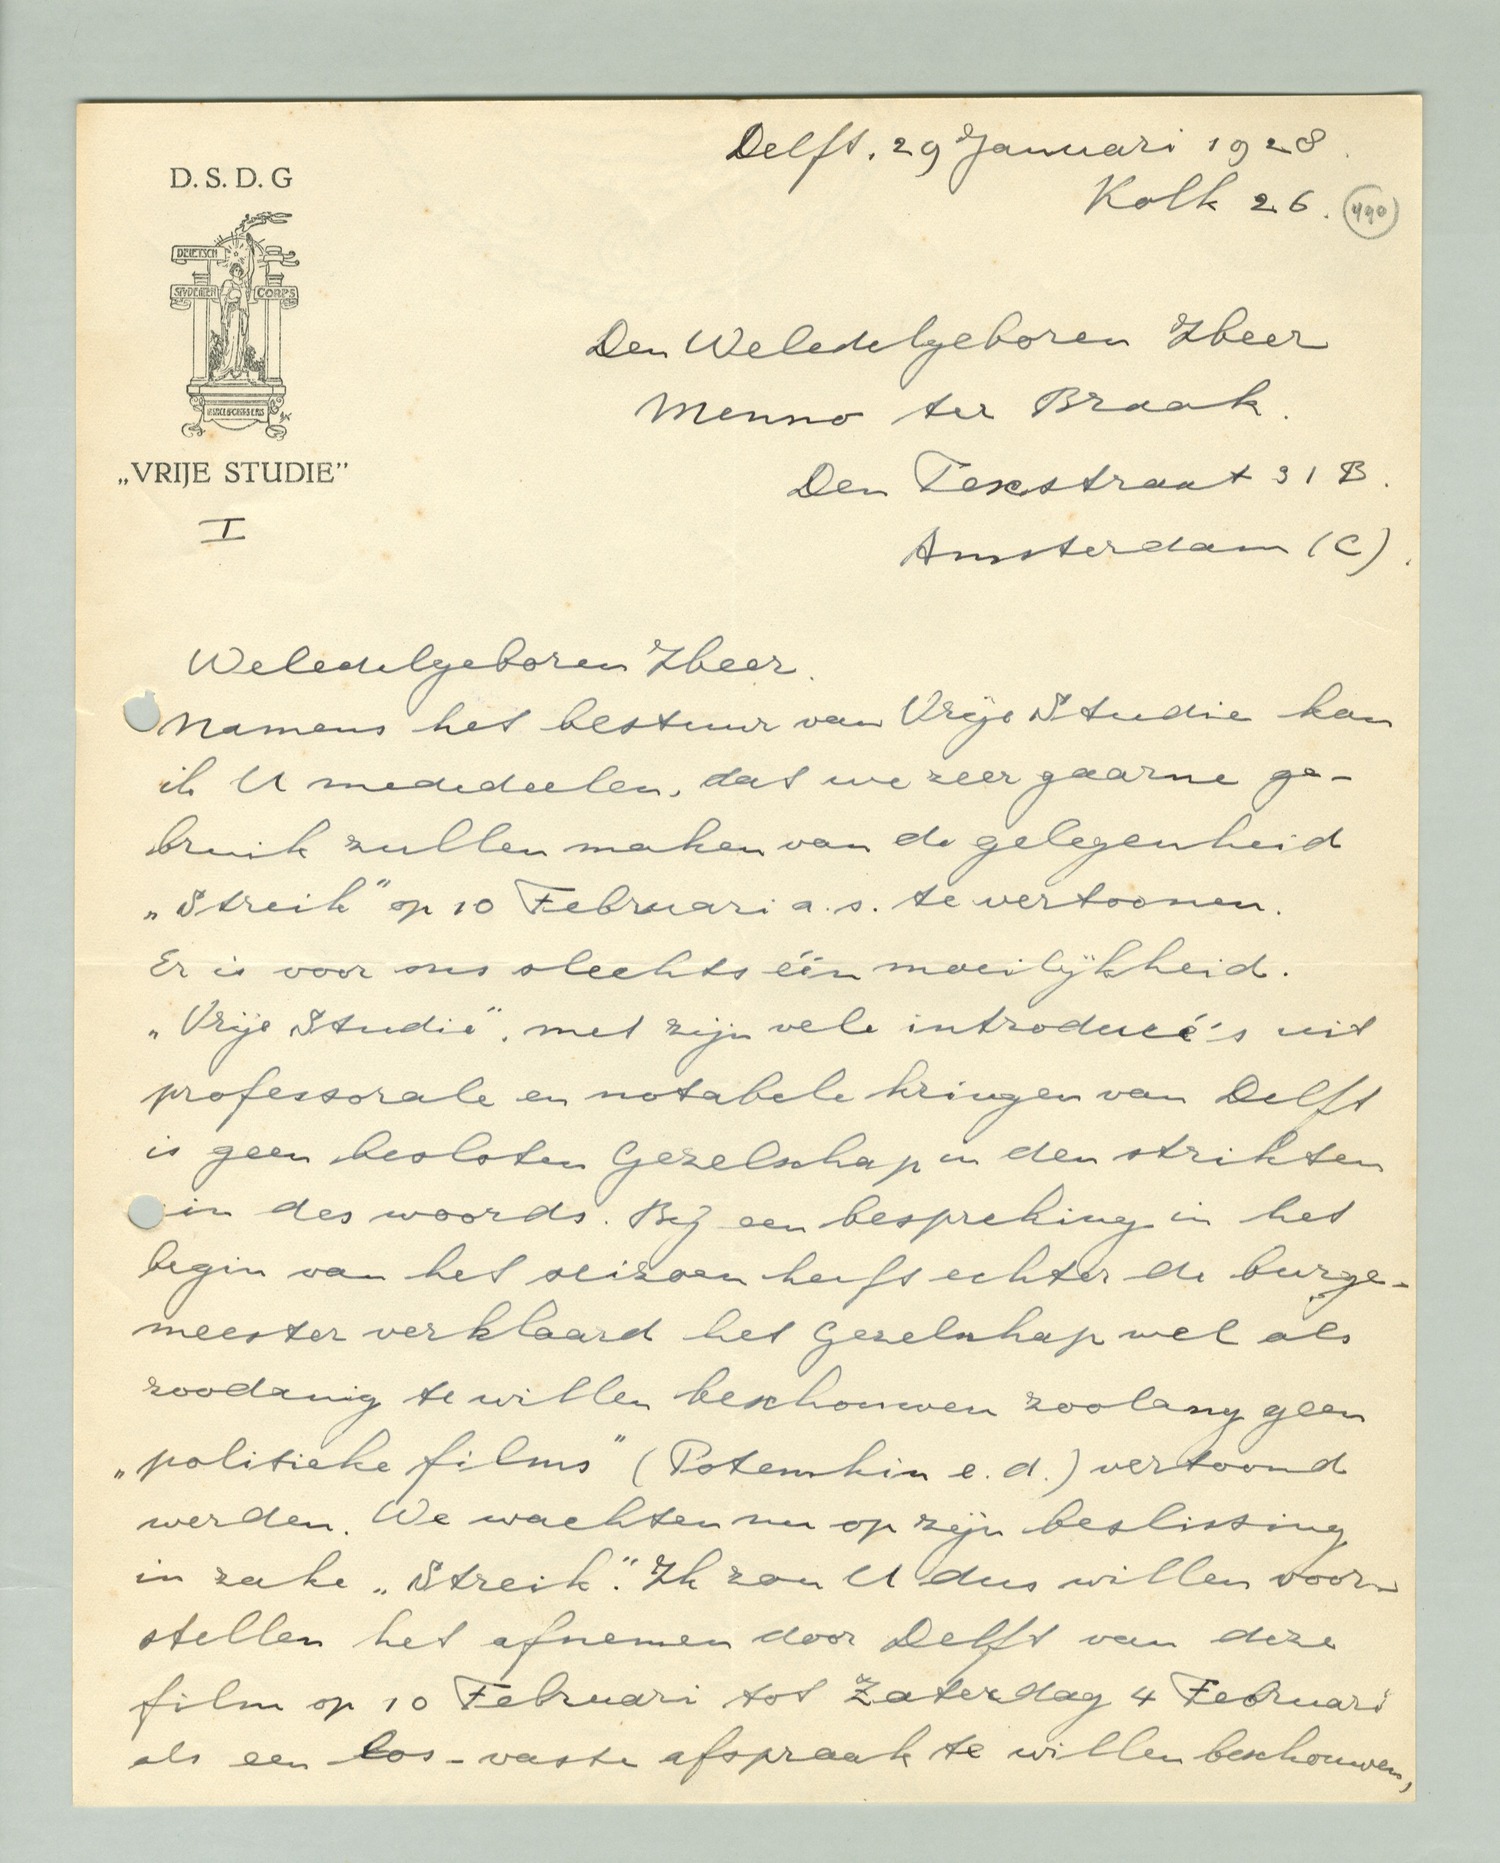 Delft, 29 Januari 1928.
Kolk 26. 490
D. S. D. G
DELFTSCH
STUDENTEN CORPS
„VRIJE STUDIE”
I
Den Weledelgeboren Heer
Menno ter Braak.
Den Texstraat 31 B.
Amsterdam (C).
Weledelgeboren Heer.
Namens het bestuur van Vrije Studie kan
ik U mededeelen, dat we zeer gaarne ge-
bruik zullen maken van de gelegenheid
„Streik” op 10 Februari a.s. te vertoonen.
Er is voor ons slechts één moeilijkheid.
„Vrije Studie”, met zijn vele introducé's uit
professorale en notabele kringen van Delft
is geen besloten Gezelschap in den strikten
zin des woords. Bij een bespreking in het
begin van het seizoen heeft echter de burge-
meester verklaard het Gezelschap wel als
zoodanig te willen beschouwen zoolang geen
„politieke films” (Potemkin e.d.) vertoond
werden. We wachten nu op zijn beslissing
in zake „Streik”. Ik zou U dus willen voor-
stellen het afnemen door Delft van deze
film op 10 Februari tot Zaterdag 4 Februari
als een los-vaste afspraak te willen beschouwen,